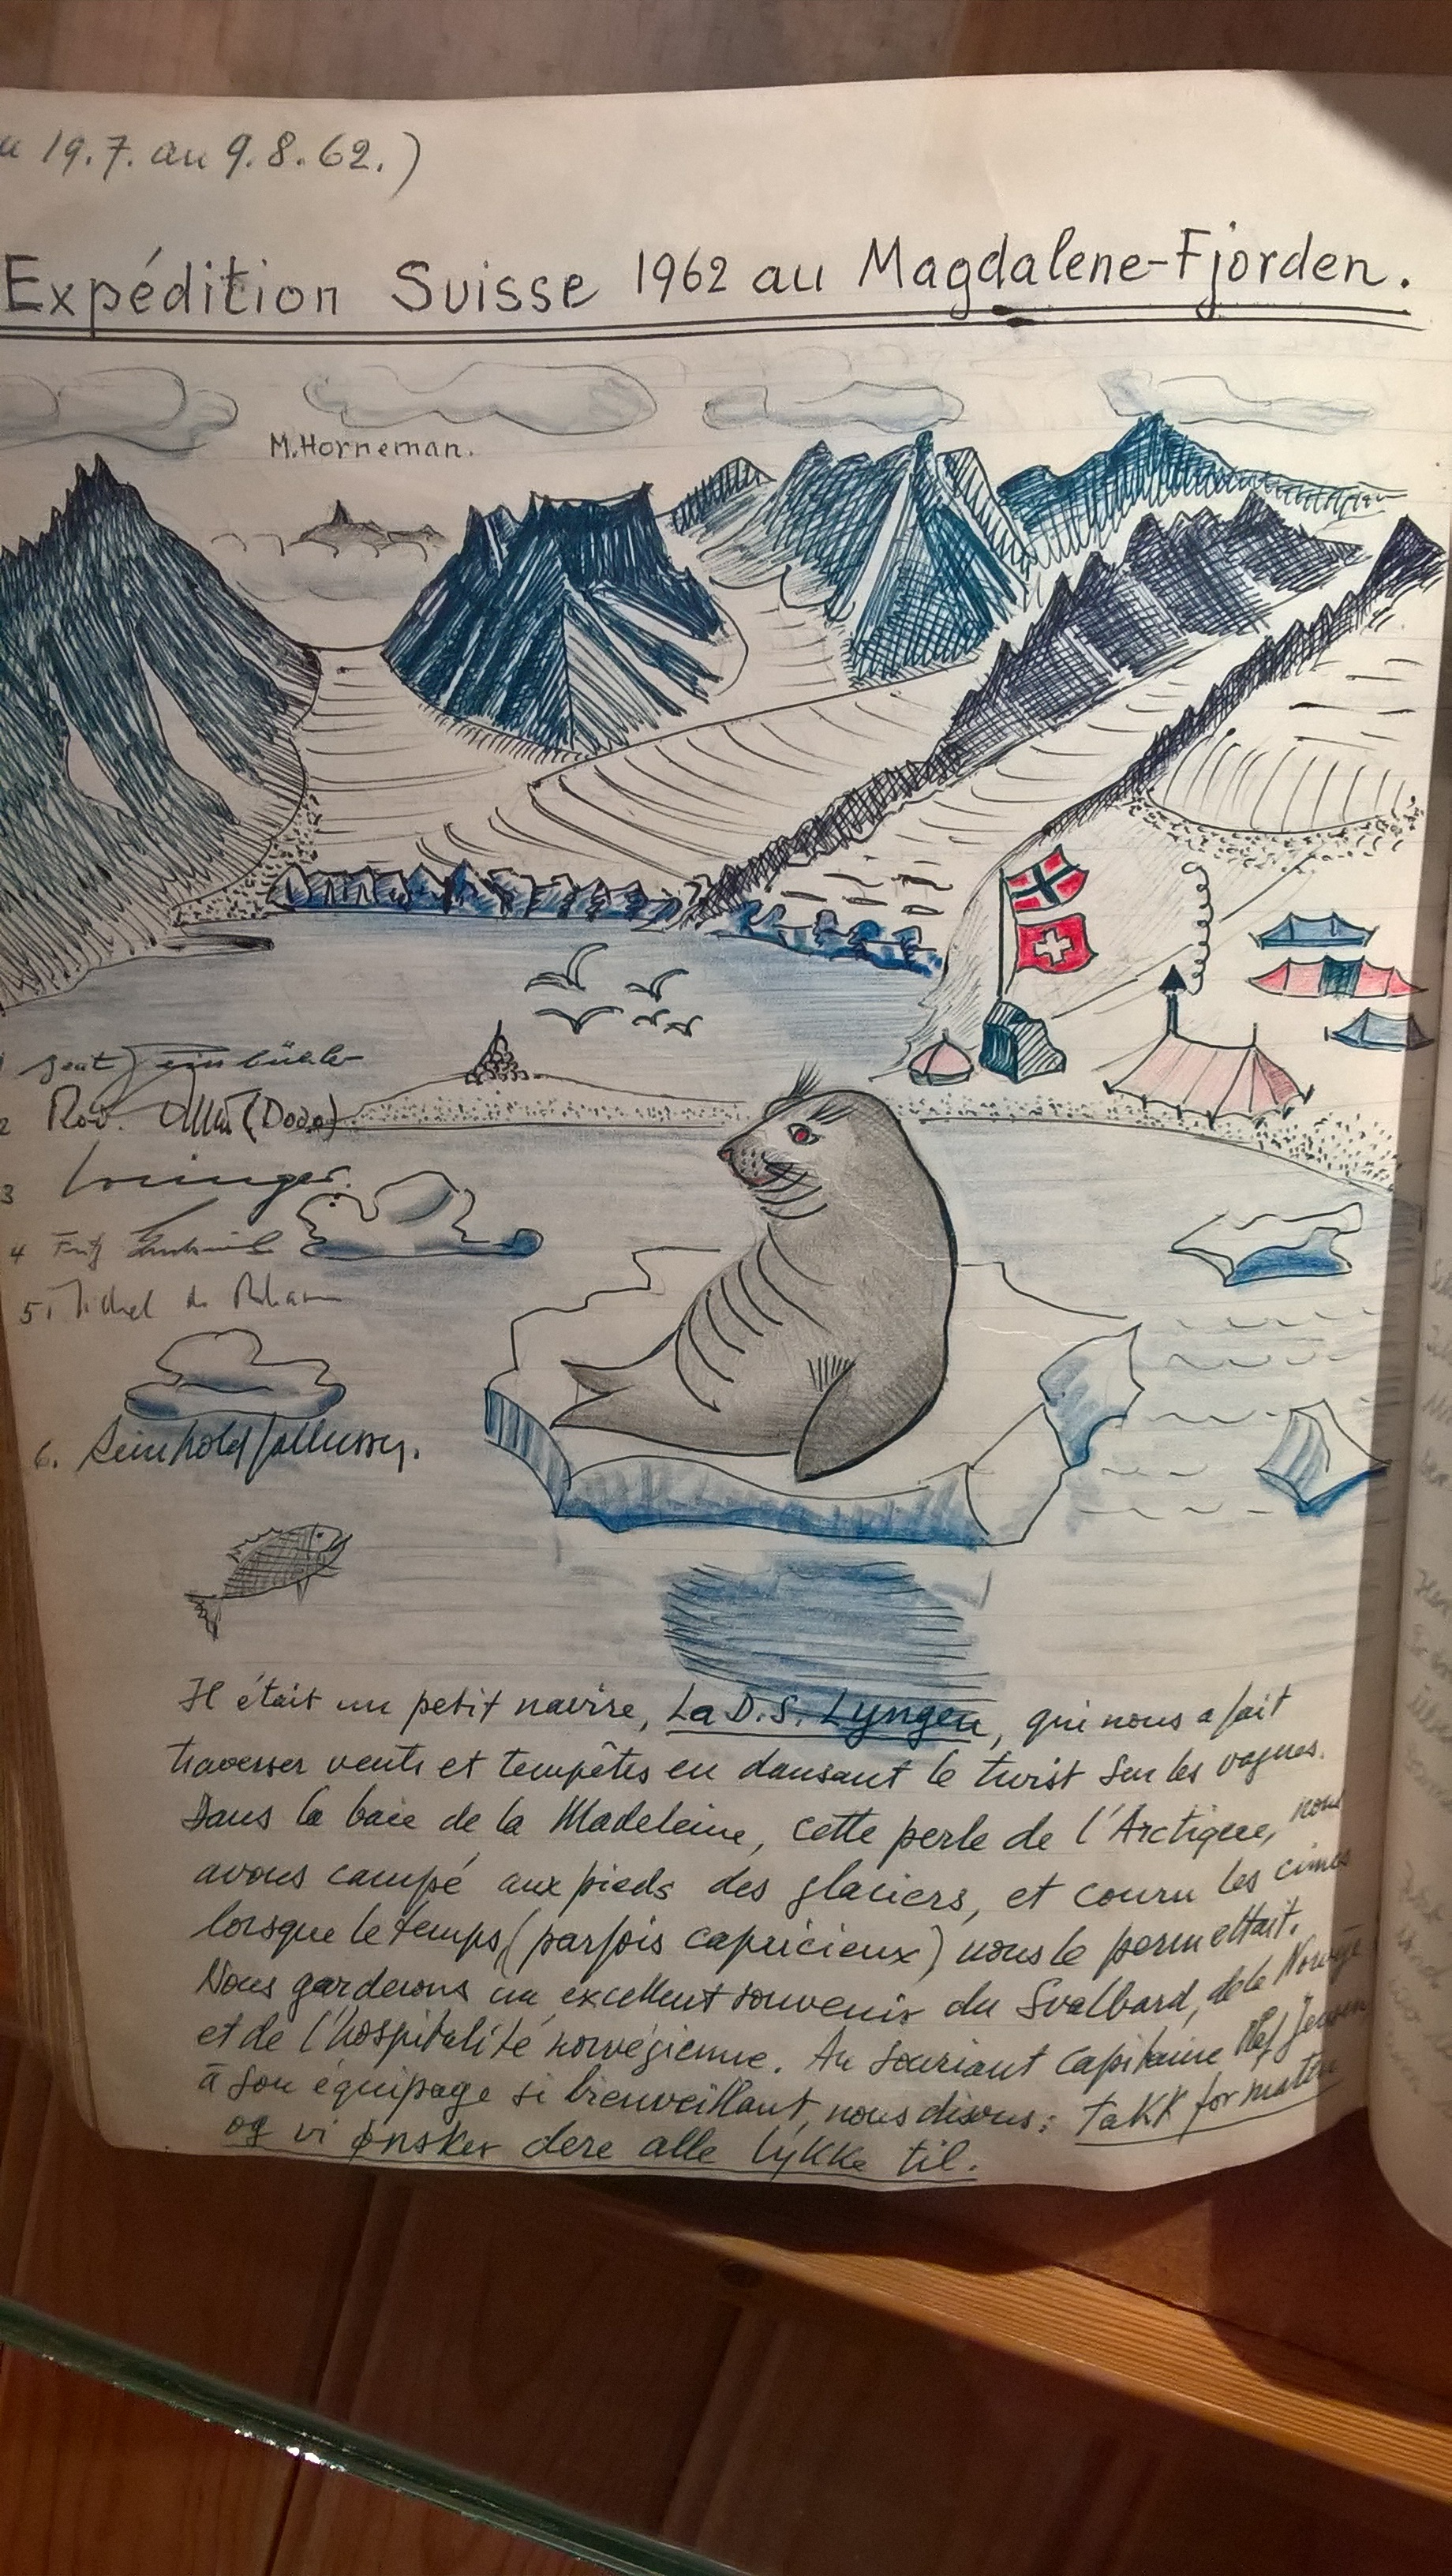 19.7. au 9.8.62.)
Expédition Suisse 1962 au Magdalene-Fjorden.
M. Horneman.
1
2 Rod. (Dodo)
3
4 Fritz
5. Michel de
6. Reinhold
Il était un petit navire, La D.S. Lyngen, qui nous a fait
traverser vents et tempêtes en dansant le twist sur les vagues.
Dans la baie de la Madeleine, cette perle de l'Arctique, nous
avons campé aux pieds des glaciers, et couru les cimes
lorsque le temps (parfois capricieux) nous le permettait.
Nous garderons un excellent souvenir du Svalbard, de la Norvège
et de l'hospitalité norvégienne. Au souriant Capitaine Olef Jensen
à son équipage si bienveillant, nous disons: Takk for maten
og vi ønsker dere alle lykke til.